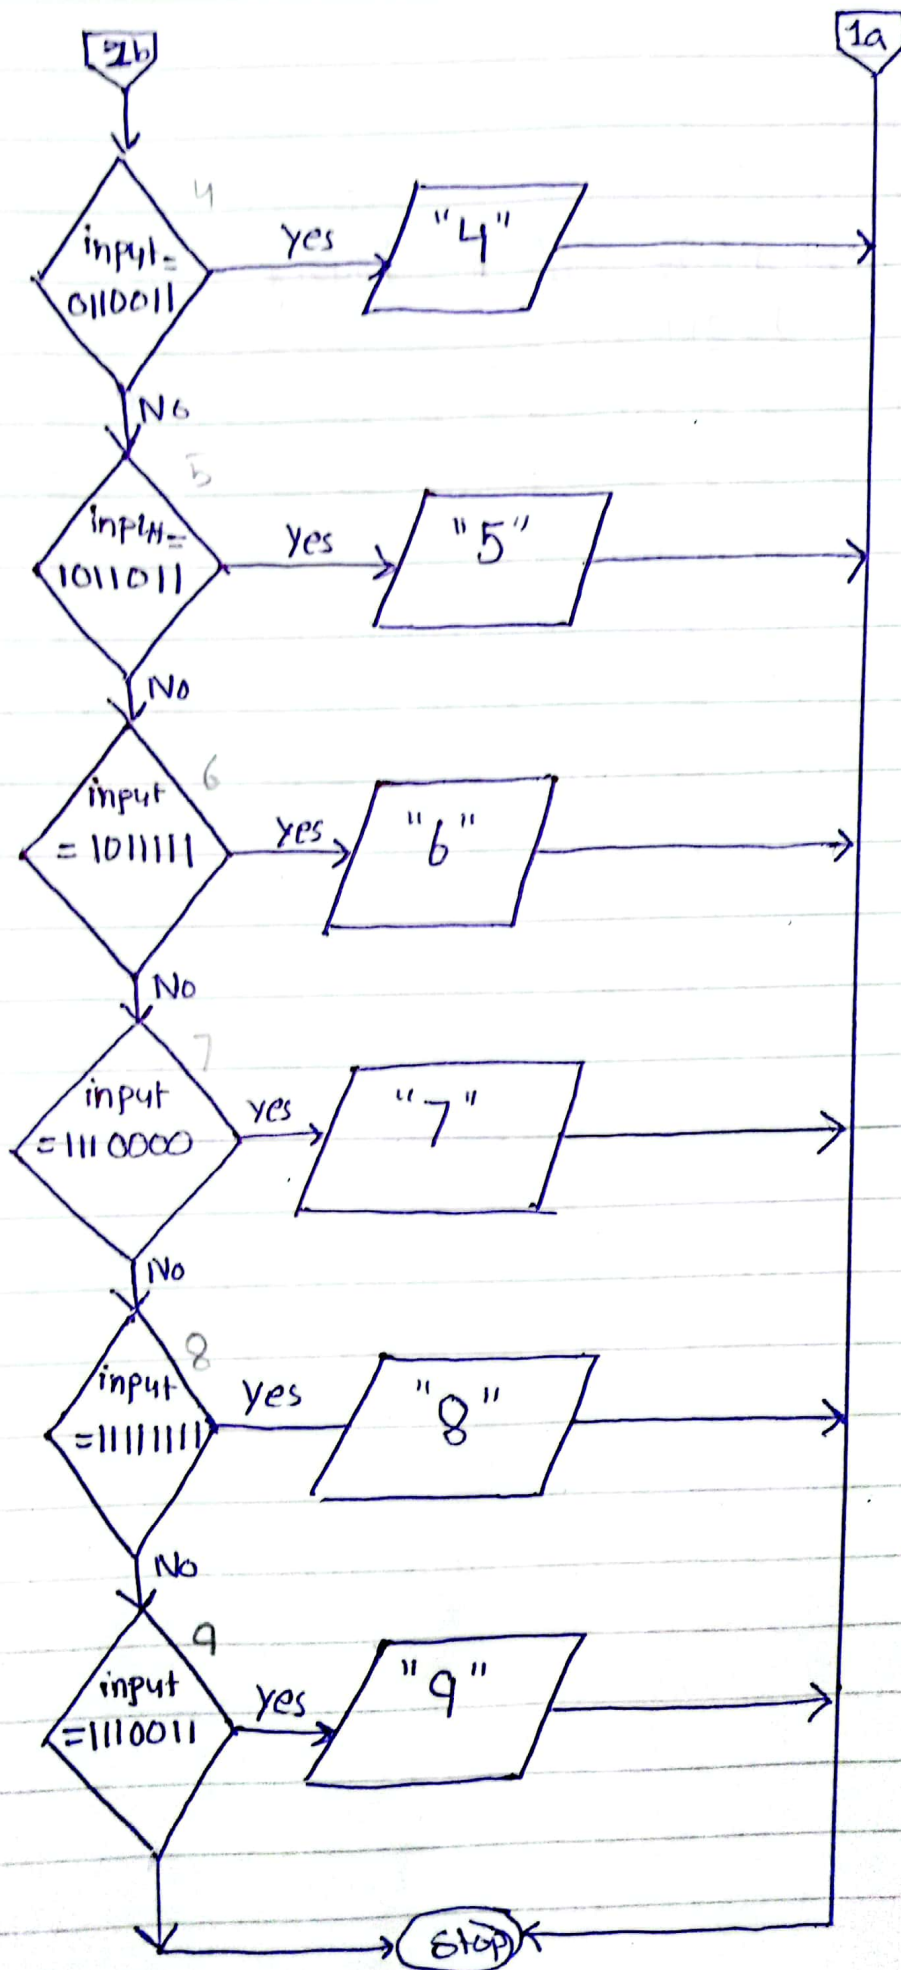 1b
1a
4
input=
0110011
yes
"4"
No
5
input=
1011011
yes
"5"
No
6
input
=1011111
yes
"6"
No
7
input
=1110000
yes
"7"
No
8
input
=11111111
yes
"8"
No
9
input
=1110011
yes
"9"
stop